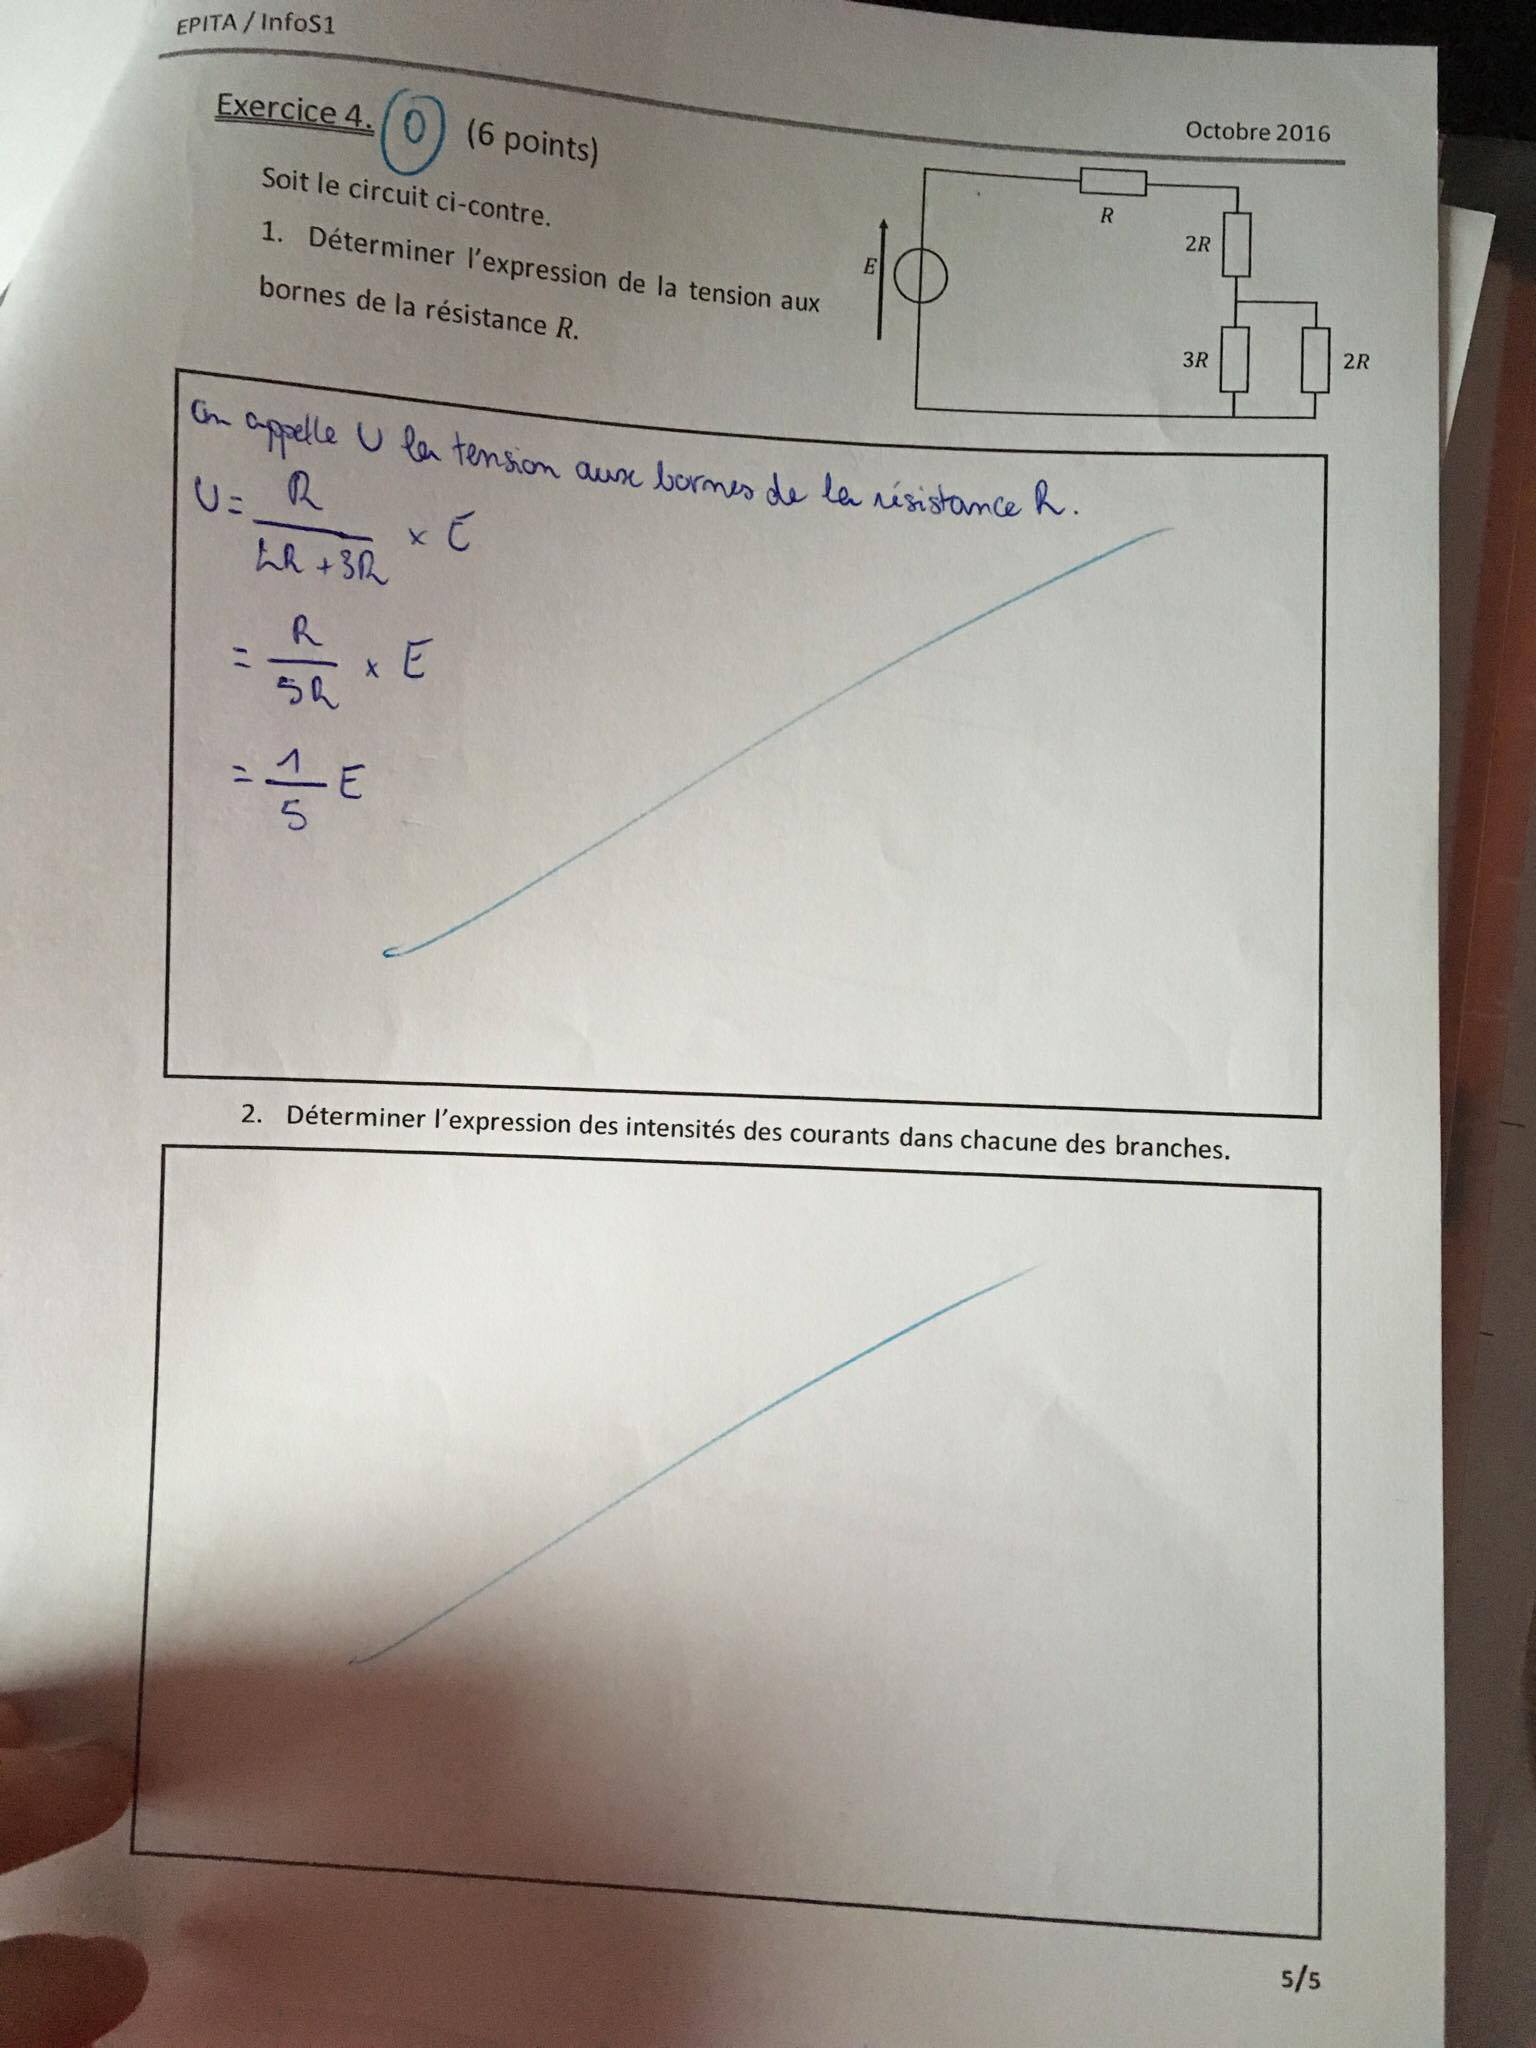 EPITA / InfoS1
Octobre 2016
Exercice 4. 0 (6 points)
Soit le circuit ci-contre.
1. Déterminer l'expression de la tension aux
bornes de la résistance R.
E
R
2R
3R
2R
On appelle U la tension aux bornes de la résistance R.
U = R / 2R + 3R × E
= R / 5R × E
= 1 / 5 E
2. Déterminer l'expression des intensités des courants dans chacune des branches.
5/5